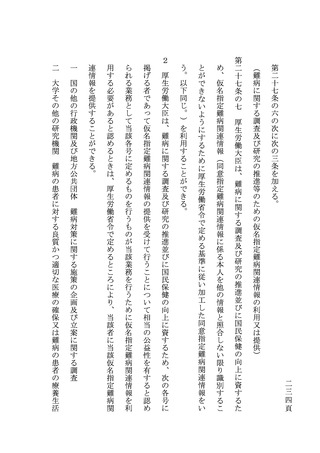 第二十七条の六の次に次の三条を加える。
(難病に関する調査及び研究の推進等のための仮名指定難病関連情報の利用又は提供)
第二十七条の七 厚生労働大臣は、難病に関する調査及び研究の推進並びに国民保健の向上に資するた
め、仮名指定難病関連情報(同意指定難病関連情報に係る本人を他の情報と照合しない限り識別するこ
とができないようにするために厚生労働省令で定める基準に従い加工した同意指定難病関連情報をい
う。以下同じ。)を利用することができる。
2 厚生労働大臣は、難病に関する調査及び研究の推進並びに国民保健の向上に資するため、次の各号に
掲げる者であって仮名指定難病関連情報の提供を受けて行うことについて相当の公益性を有すると認め
られる業務として当該各号に定めるものを行うものが当該業務を行うために仮名指定難病関連情報を利
用する必要があると認めるときは、厚生労働省令で定めるところにより、当該者に当該仮名指定難病関
連情報を提供することができる。
一 国の他の行政機関及び地方公共団体 難病対策に関する施策の企画及び立案に関する調査
二 大学その他の研究機関 難病の患者に対する良質かつ適切な医療の確保又は難病の患者の療養生活
二三四頁